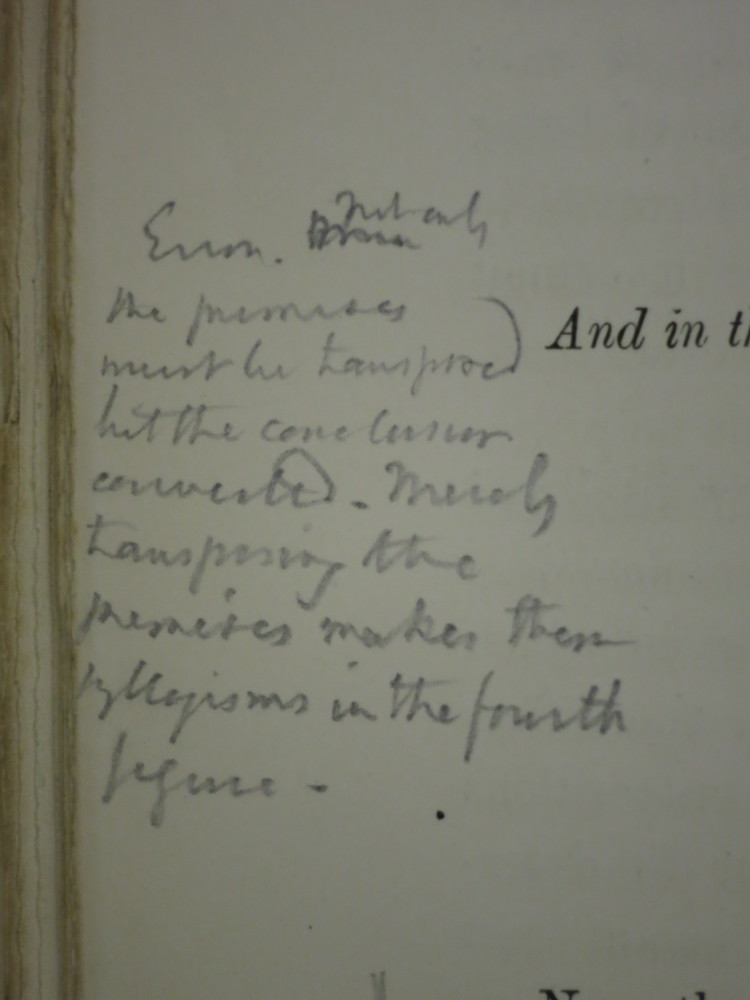 Error. Not only
the premises
must be transposed
but the conclusion
converted. Merely
transposing the
premises makes them
syllogisms in the fourth
figure -
And in th